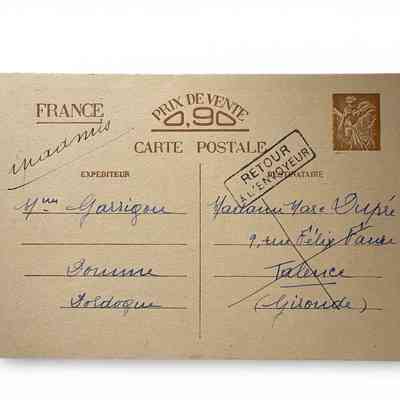 FRANCE
PRIX DE VENTE
0,90
CARTE POSTALE
inadmis
RETOUR
À L'ENVOYEUR
EXPÉDITEUR
DESTINATAIRE
Mme Garrigou
Domme
Dordogne
Madame Marc Dupré
9, rue Félix Faure
Talence
(Gironde)